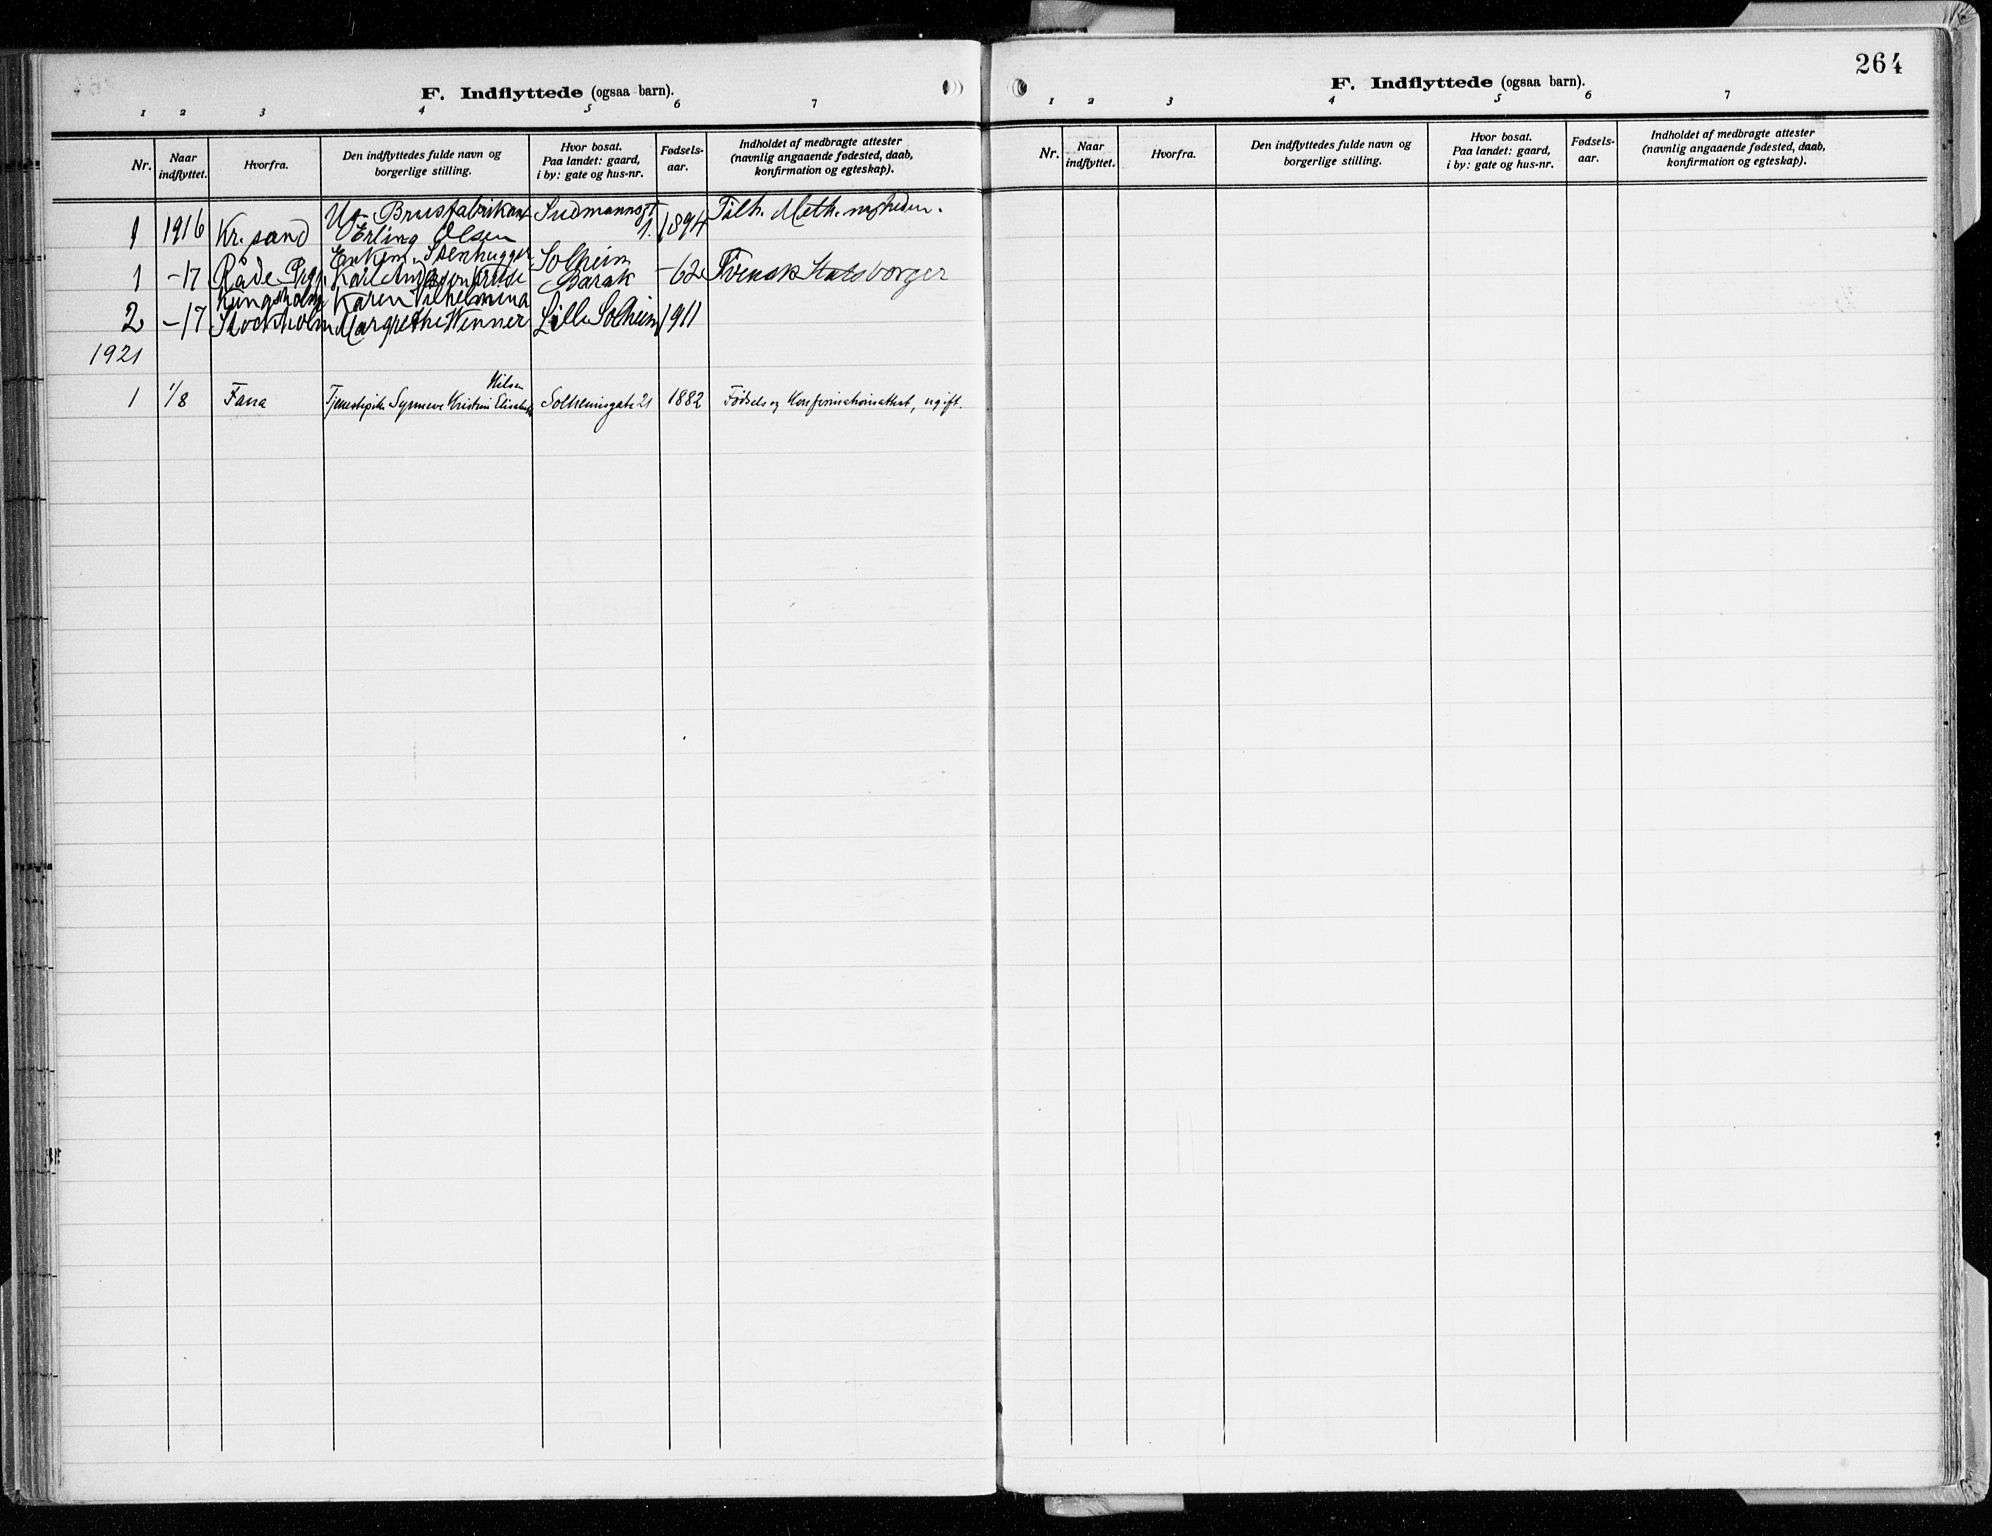 264
F. Indflyttede (ogsaa barn).
1 2 3 4 5 6 7
Nr.
Naar indflyttet.
Hvorfra.
Den indflyttedes fulde navn og borgerlige stilling.
Hvor bosat. Paa landet: gaard, i by: gate og hus-nr.
Fødsels-aar.
Indholdet af medbragte attester (navnlig angaaende fødested, daab, konfirmation og egteskap).
Brusfabrikant Sudmannsgt Tilh. Meth.
1 1916 Kr.sand Erling Olsen 1. 1894
Enkem. Stenhugger Solheim
1 -17 Råde Karl Barak -62 Svensk Statsborger
Kungsholm Karen Vilhelmina
2 -17 Stockholm Margrethe Wenner Lille Solheim 1911
1921
Nilsen
1 1/8 Fana Tjenestepike Synneve Kristine Elisabeth Solheimsgate 21 1882 Fødsels og Konfirmationsattest, ugift.
F. Indflyttede (ogsaa barn).
1 2 3 4 5 6 7
Nr.
Naar indflyttet.
Hvorfra.
Den indflyttedes fulde navn og borgerlige stilling.
Hvor bosat. Paa landet: gaard, i by: gate og hus-nr.
Fødsels-aar.
Indholdet af medbragte attester (navnlig angaaende fødested, daab, konfirmation og egteskap).